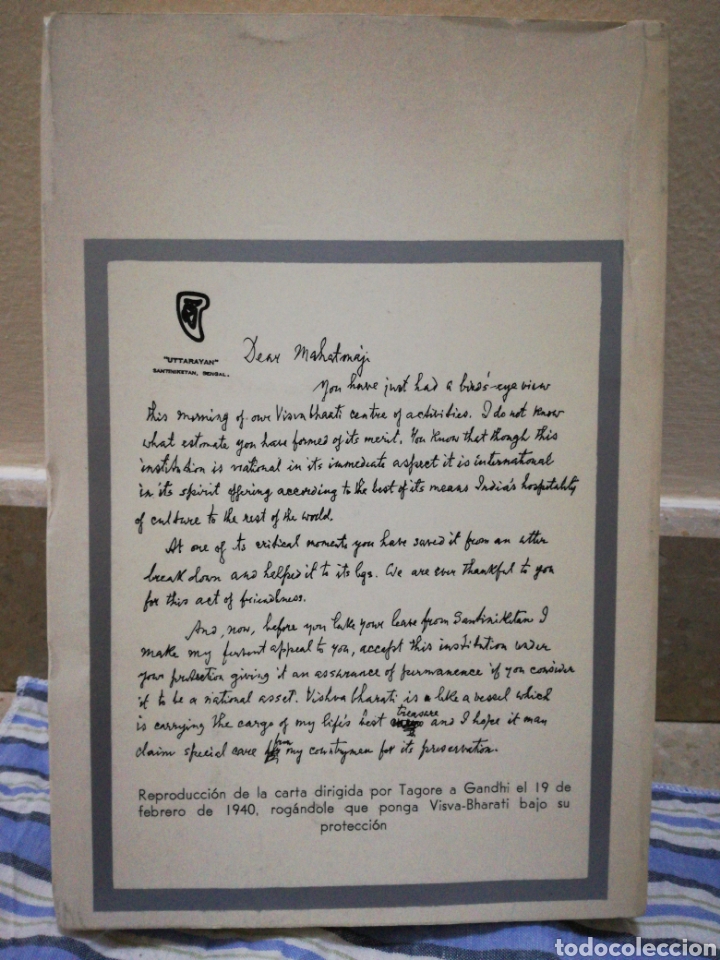 "UTTARAYAN"
SANTINIKETAN, BENGAL.
Dear Mahatmaji
You have just had a bird's-eye view
this morning of our Visvabharati centre of activities. I do not know
what estimate you have formed of its merit. You know that though this
institution is national in its immediate aspect it is international
in its spirit offering according to the best of its means India's hospitality
of culture to the rest of the world.
At one of its critical moments you have saved it from an utter
break down and helped it to its legs. We are ever thankful to you
for this act of friendliness.
And, now, before you take your leave from Santiniketan I
make my fervent appeal to you, accept this institution under
your protection giving it an assurance of permanence if you consider
it to be a national asset. Vishva bharati is a like a vessel which
is carrying the cargo of my life's best treasure and I hope it may
claim special care from my countrymen for its preservation.
Reproducción de la carta dirigida por Tagore a Gandhi el 19 de
febrero de 1940, rogándole que ponga Visva-Bharati bajo su
protección
todocoleccion